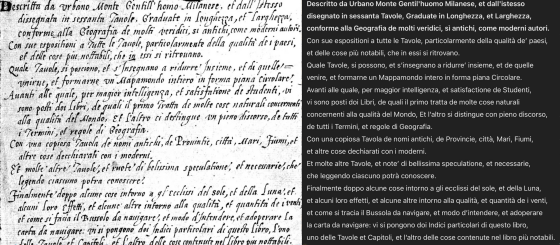 Descritto da Urbano Monte Gentil'homo Milanese, et dall'istesso
disegnato in sessanta Tavole, Graduate in Longhezza, et Larghezza,
conforme alla Geografia de molti veridi, si antichi, come moderni autori.
Con sue espositioni a tutte le Tavole, particolarmente della qualità de i paesi,
et delle cose più notabili, che in essi si ritrovano.
Quale Tavole, si possono, et s'insegnano a ridurre' insieme, et de quelle'
venire, et formarne un Mapamondo intero in forma piana Circolare'.
Avanti alle quale, per maggior intelligenza, et satisfatione de Studenti, vi
sono posti doi Libri, de quali il primo tratta de molte cose naturali concernenti
alla qualità del Mondo, et l'altro ci distingue un pieno discorso, de tutti
i Termini, et regole di Geografia.
Con una copiosa Tavola de nomi antichi, de Provintie, città, Mari, Fiumi, et
altre cose decchiarati con i moderni.
Et molte altre' Tavole, et Ruote' di belissima speculatione', et necessarie', che
legendo ciascuno potra conoscere'.
Finalmente' doppo alcune cose intorno a gl'ecclissi del sole, et della Luna, et
alcuni loro effetti, et alcune altre intorno alla qualità, et quantità de i venti,
et come si faria il Bussola da navigare', et modo d'intendere, et adoperare La
carta da navigare: vi si pongono doi Indici particolari di questo Libro, l'uno
delle Tavole et Capitoli, et l'altro delle cose contenute nel libro più notabili.
Descritto da Urbano Monte Gentil'huomo Milanese, et dall'istesso
disegnato in sessanta Tavole, Graduate in Longhezza, et Larghezza,
conforme alla Geografia de molti veridi, si antichi, come moderni autori.
Con sue espositioni a tutte le Tavole, particolarmente della qualità de' paesi,
et delle cose più notabili, che in essi si ritrovano.
Quale Tavole, si possono, et s'insegnano a ridurre' insieme, et de quelle
venire, et formarne un Mappamondo intero in forma piana Circolare'.
Avanti alle quale, per maggior intelligenza, et satisfatione de Studenti,
vi sono posti doi Libri, de quali il primo tratta de molte cose naturali
concernenti alla qualità del Mondo, Et l'altro si distigue con pieno discorso,
de tutti i Termini, et regole di Geografia.
Con una copiosa Tavola de nomi antichi, de Provincie, città, Mari, Fiumi,
et altre cose dechiarati con i moderni.
Et molte altre Tavole, et note' di bellissima speculatione, et necessarie,
che leggendo ciascuno potrà conoscere.
Finalmente doppo alcune cose intorno a gli ecclissi del sole, et della Luna,
et alcuni loro effetti, et alcune altre intorno alla qualità, et quantità di i venti,
et come si tracia il Bussola da navigare, et modo d'intendere, et adoperare
la carta da navigare: vi si pongono doi Indici particolari di questo Libro,
uno delle Tavole et Capitoli, et l'altro delle cose contenute nel libro più notabili